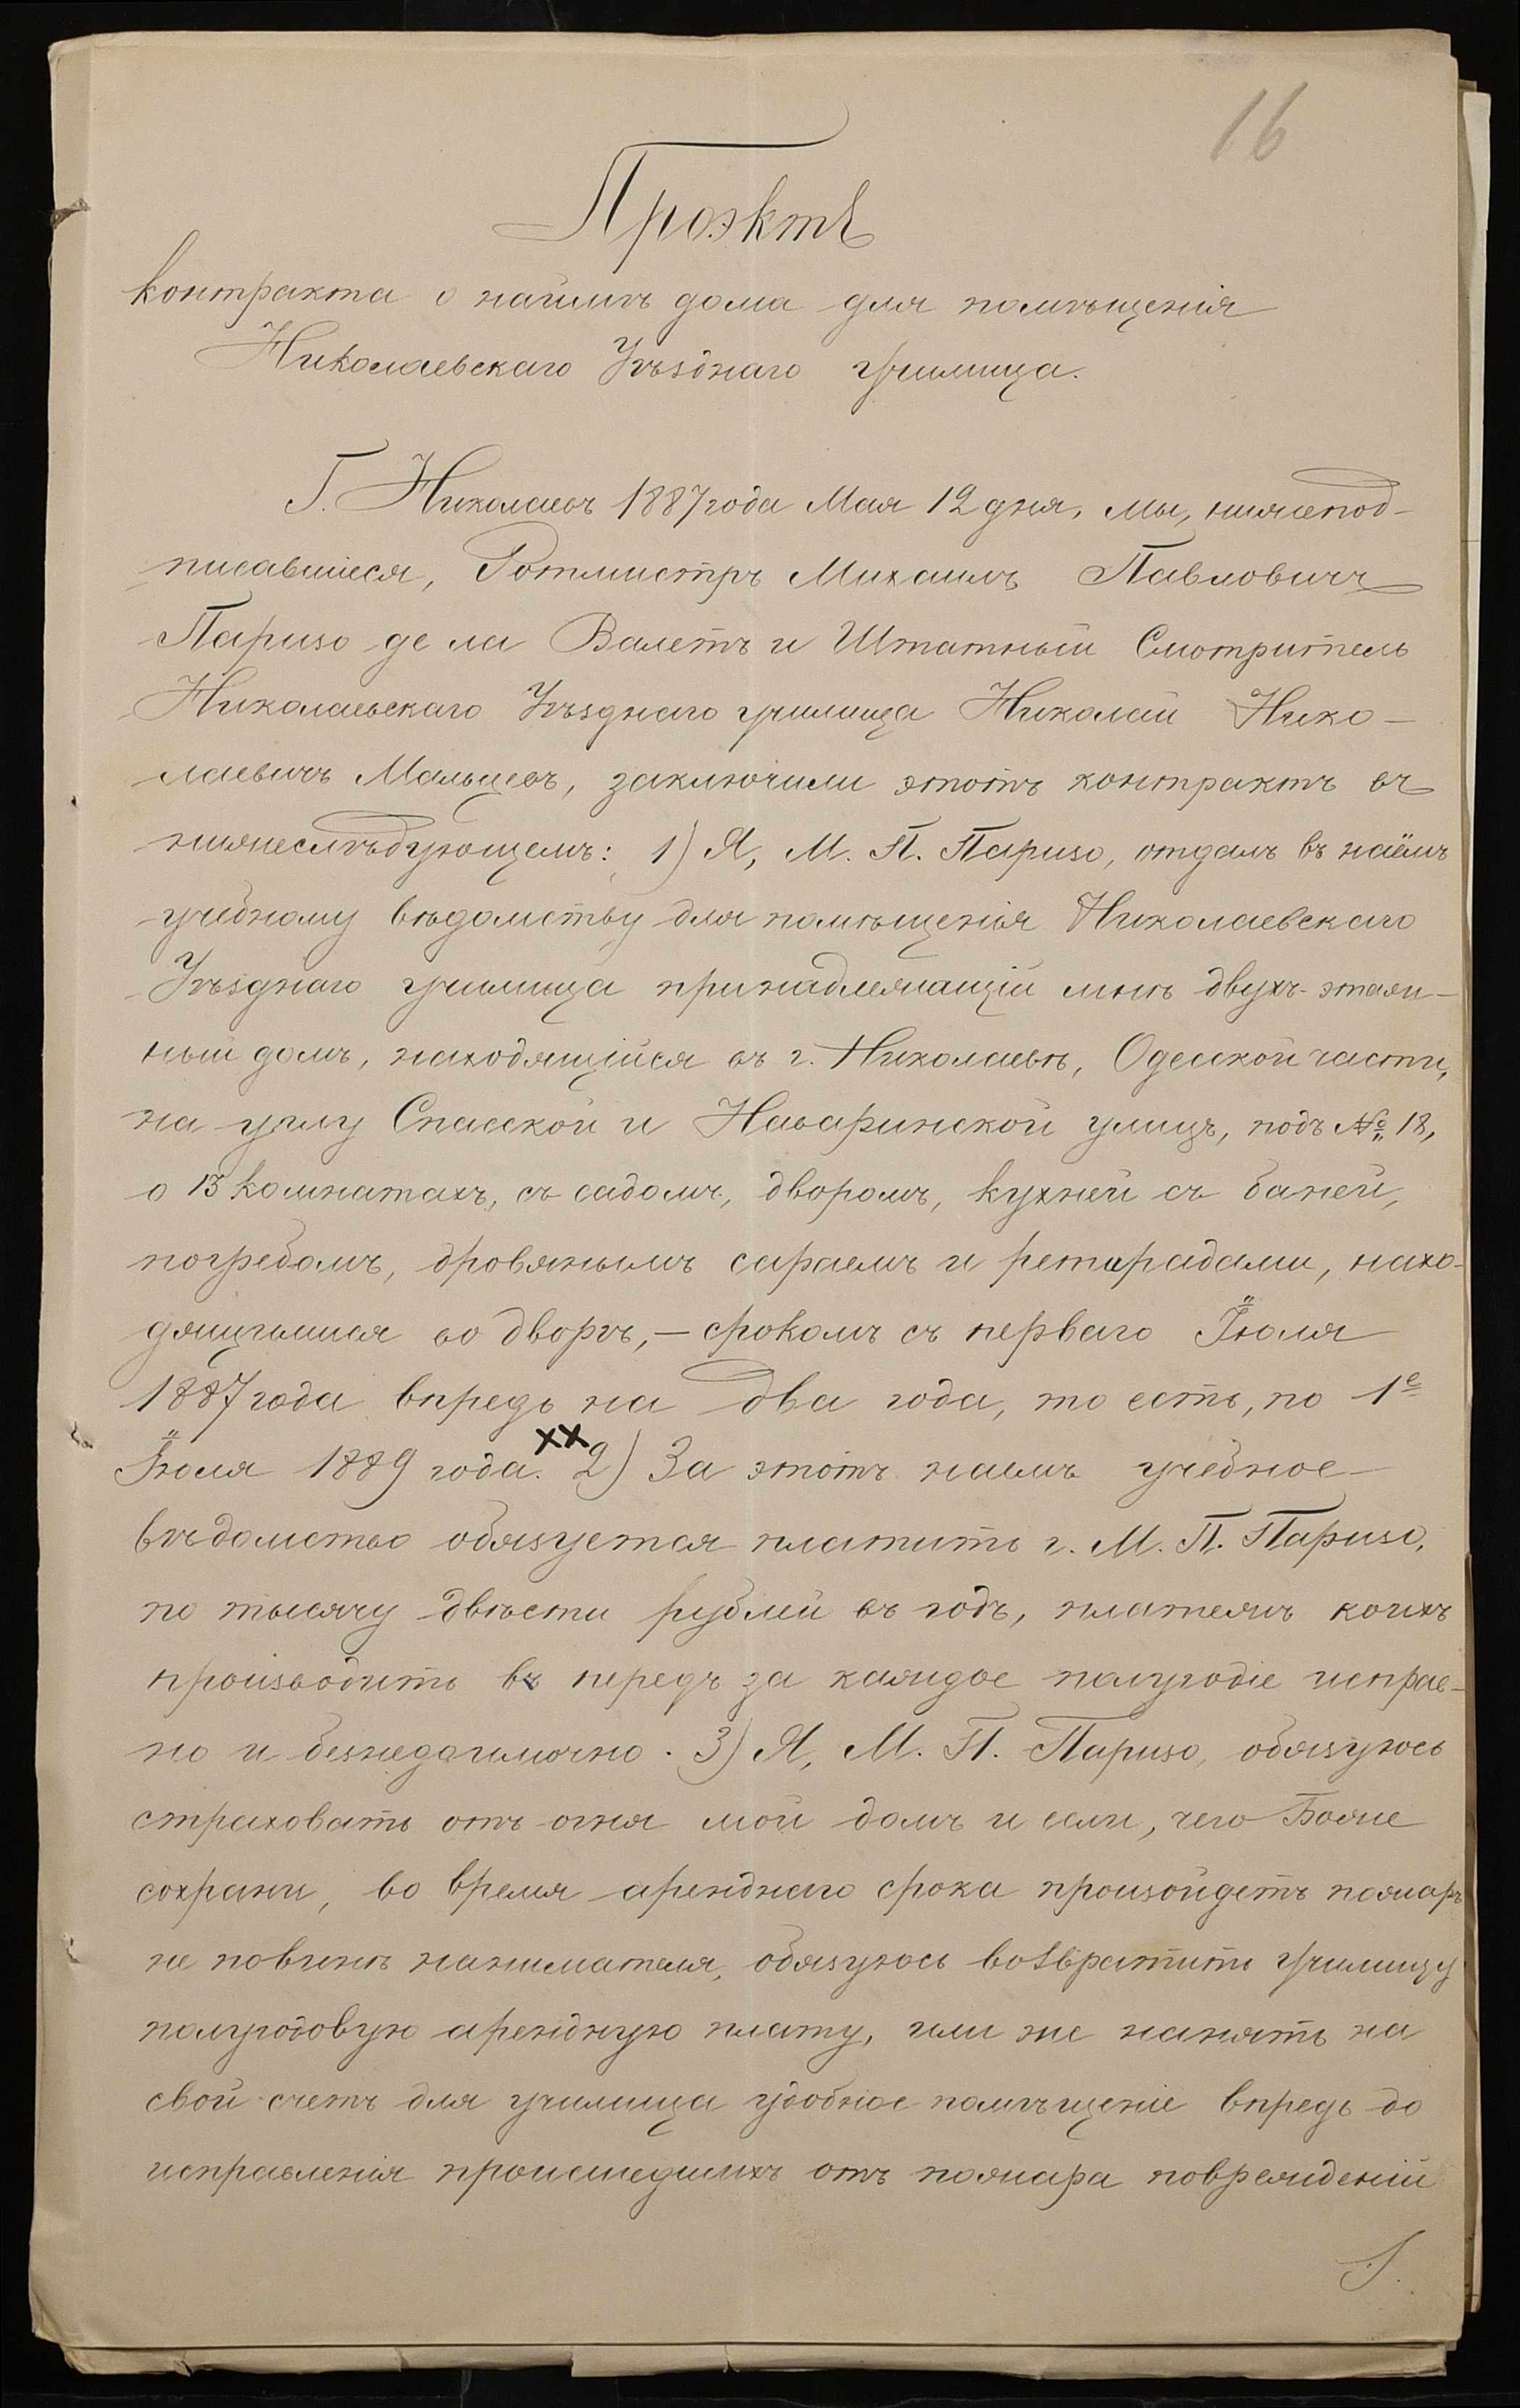 16
Проэктъ
контракта о наймѣ дома для помѣщенія
Николаевскаго Уѣзднаго училища.
Г. Николаевъ 1887 года Мая 12 дня, мы, нижепод-
писавшіеся, Ротмистръ Михаилъ Павловичъ
Паризо де ла Валетъ и Штатный Смотритель
Николаевскаго Уѣзднаго училища Николай Нико-
лаевичъ Мальцевъ, заключили этотъ контрактъ въ
нижеслѣдующемъ: 1) Я, М. П. Паризо, отдалъ въ наёмъ
учебному вѣдомству для помѣщенія Николаевскаго
Уѣзднаго училища принадлежащій мнѣ двухъ-этаж-
ный домъ, находящійся въ г. Николаевѣ, Одесской части,
на углу Спасской и Наваринской улицъ, подъ № 18,
о 13 комнатахъ, съ садомъ, дворомъ, кухней съ баней,
погребомъ, дровянымъ сараемъ и ретирадами, нахо-
дящимися во дворѣ, — срокомъ съ перваго Іюля
1887 года впредь на два года, то есть, по 1е
Іюля 1889 года. ХХ 2) За этотъ наемъ учебное
вѣдомство обязуется платить г. М. П. Паризо,
по тысячу двѣсти рублей въ годъ, платежъ коихъ
производить въ передъ за каждое полугодіе исправ-
но и безнедоимочно. 3) Я, М. П. Паризо, обязуюсь
страховать отъ огня мой домъ и если, чего Боже
сохрани, во время аренднаго срока произойдетъ пожаръ
не повинѣ нанимателя, обязуюсь возвратить училищу
полугодовую арендную плату, или же нанять на
свой счетъ для училища удобное помѣщеніе впредь до
исправленія происшедшихъ отъ пожара поврежденій